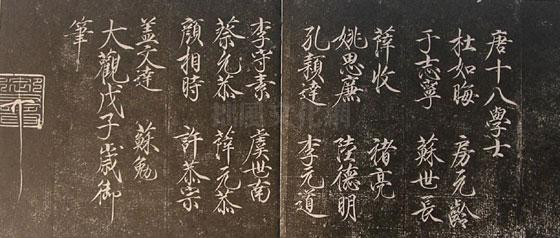 唐十八學士
杜如晦　房元齡
于志寧　蘇世長
薛收　褚亮
姚思廉　陸德明
孔穎達　李元道
李守素　虞世南
蔡元恭　薛元恭
顏相時　許恭宗
盖文達　蘇勉
大觀戊子歲御
筆